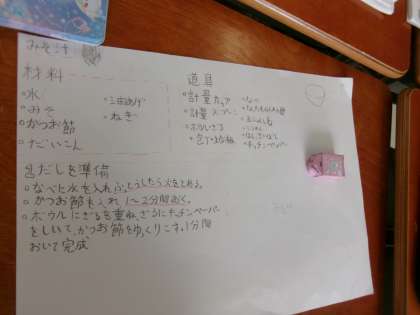 みそ汁
材料
・水
・みそ
・かつお節
・だいこん
・油あげ
・ねぎ
道具
・計量カップ
・計量スプーン
・ボウル ざる
・包丁 まな板
・なべ
・キッチンペーパー
だしを準備
・なべに水を入れふっとうしたら火をとめる。
・かつお節を入れ1〜2分間おく。
・ボウルにざるを重ね、ざるにキッチンペーパー
をしいて、かつお節をゆっくりこす。1分間
おいて完成